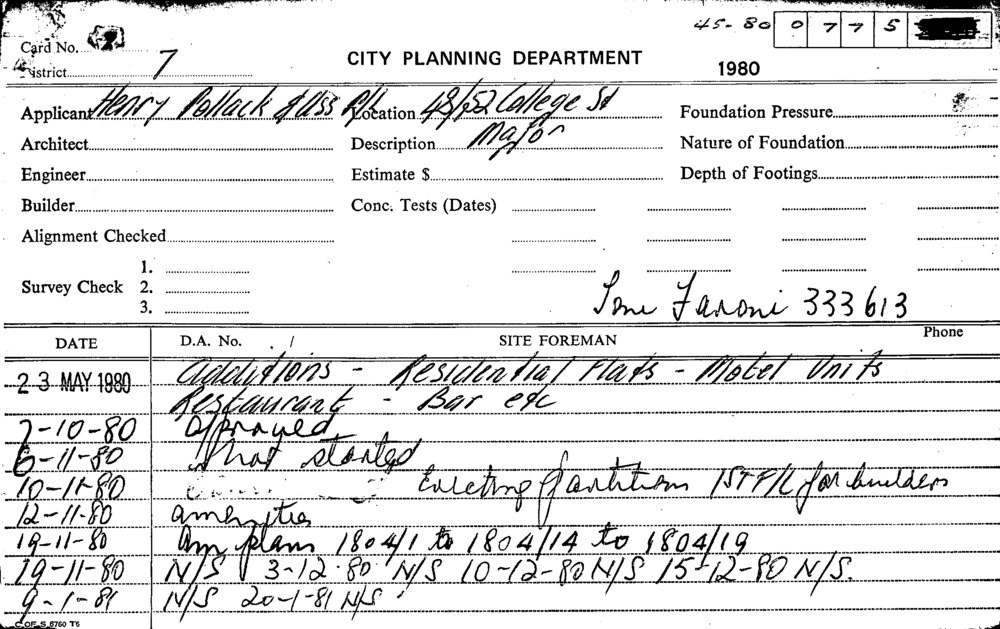 45-80 0775
Card No.
District 7 CITY PLANNING DEPARTMENT 1980
Applicant Henry Pollack & Ass P/L Location 48/52 College St Foundation Pressure
Architect Description Major Nature of Foundation
Engineer Estimate $ Depth of Footings
Builder Conc. Tests (Dates)
Alignment Checked
1.
Survey Check 2.
3.
Faroni 333613
DATE D.A. No. / SITE FOREMAN Phone
23 MAY 1980 Additions - Residential Flats - Motel Units
Restaurant - Bar etc
7-10-80 Approved
6-11-80 not started
10-11-80 Erecting partitions 1ST F/L for builders
12-11-80 amenities
19-11-80 Am plans 1804/1 to 1804/14 to 1804/19
19-11-80 N/S 3-12-80 N/S 10-12-80 N/S 15-12-80 N/S.
9-1-81 N/S 20-1-81 N/S
C.OF.S. 6760 T6